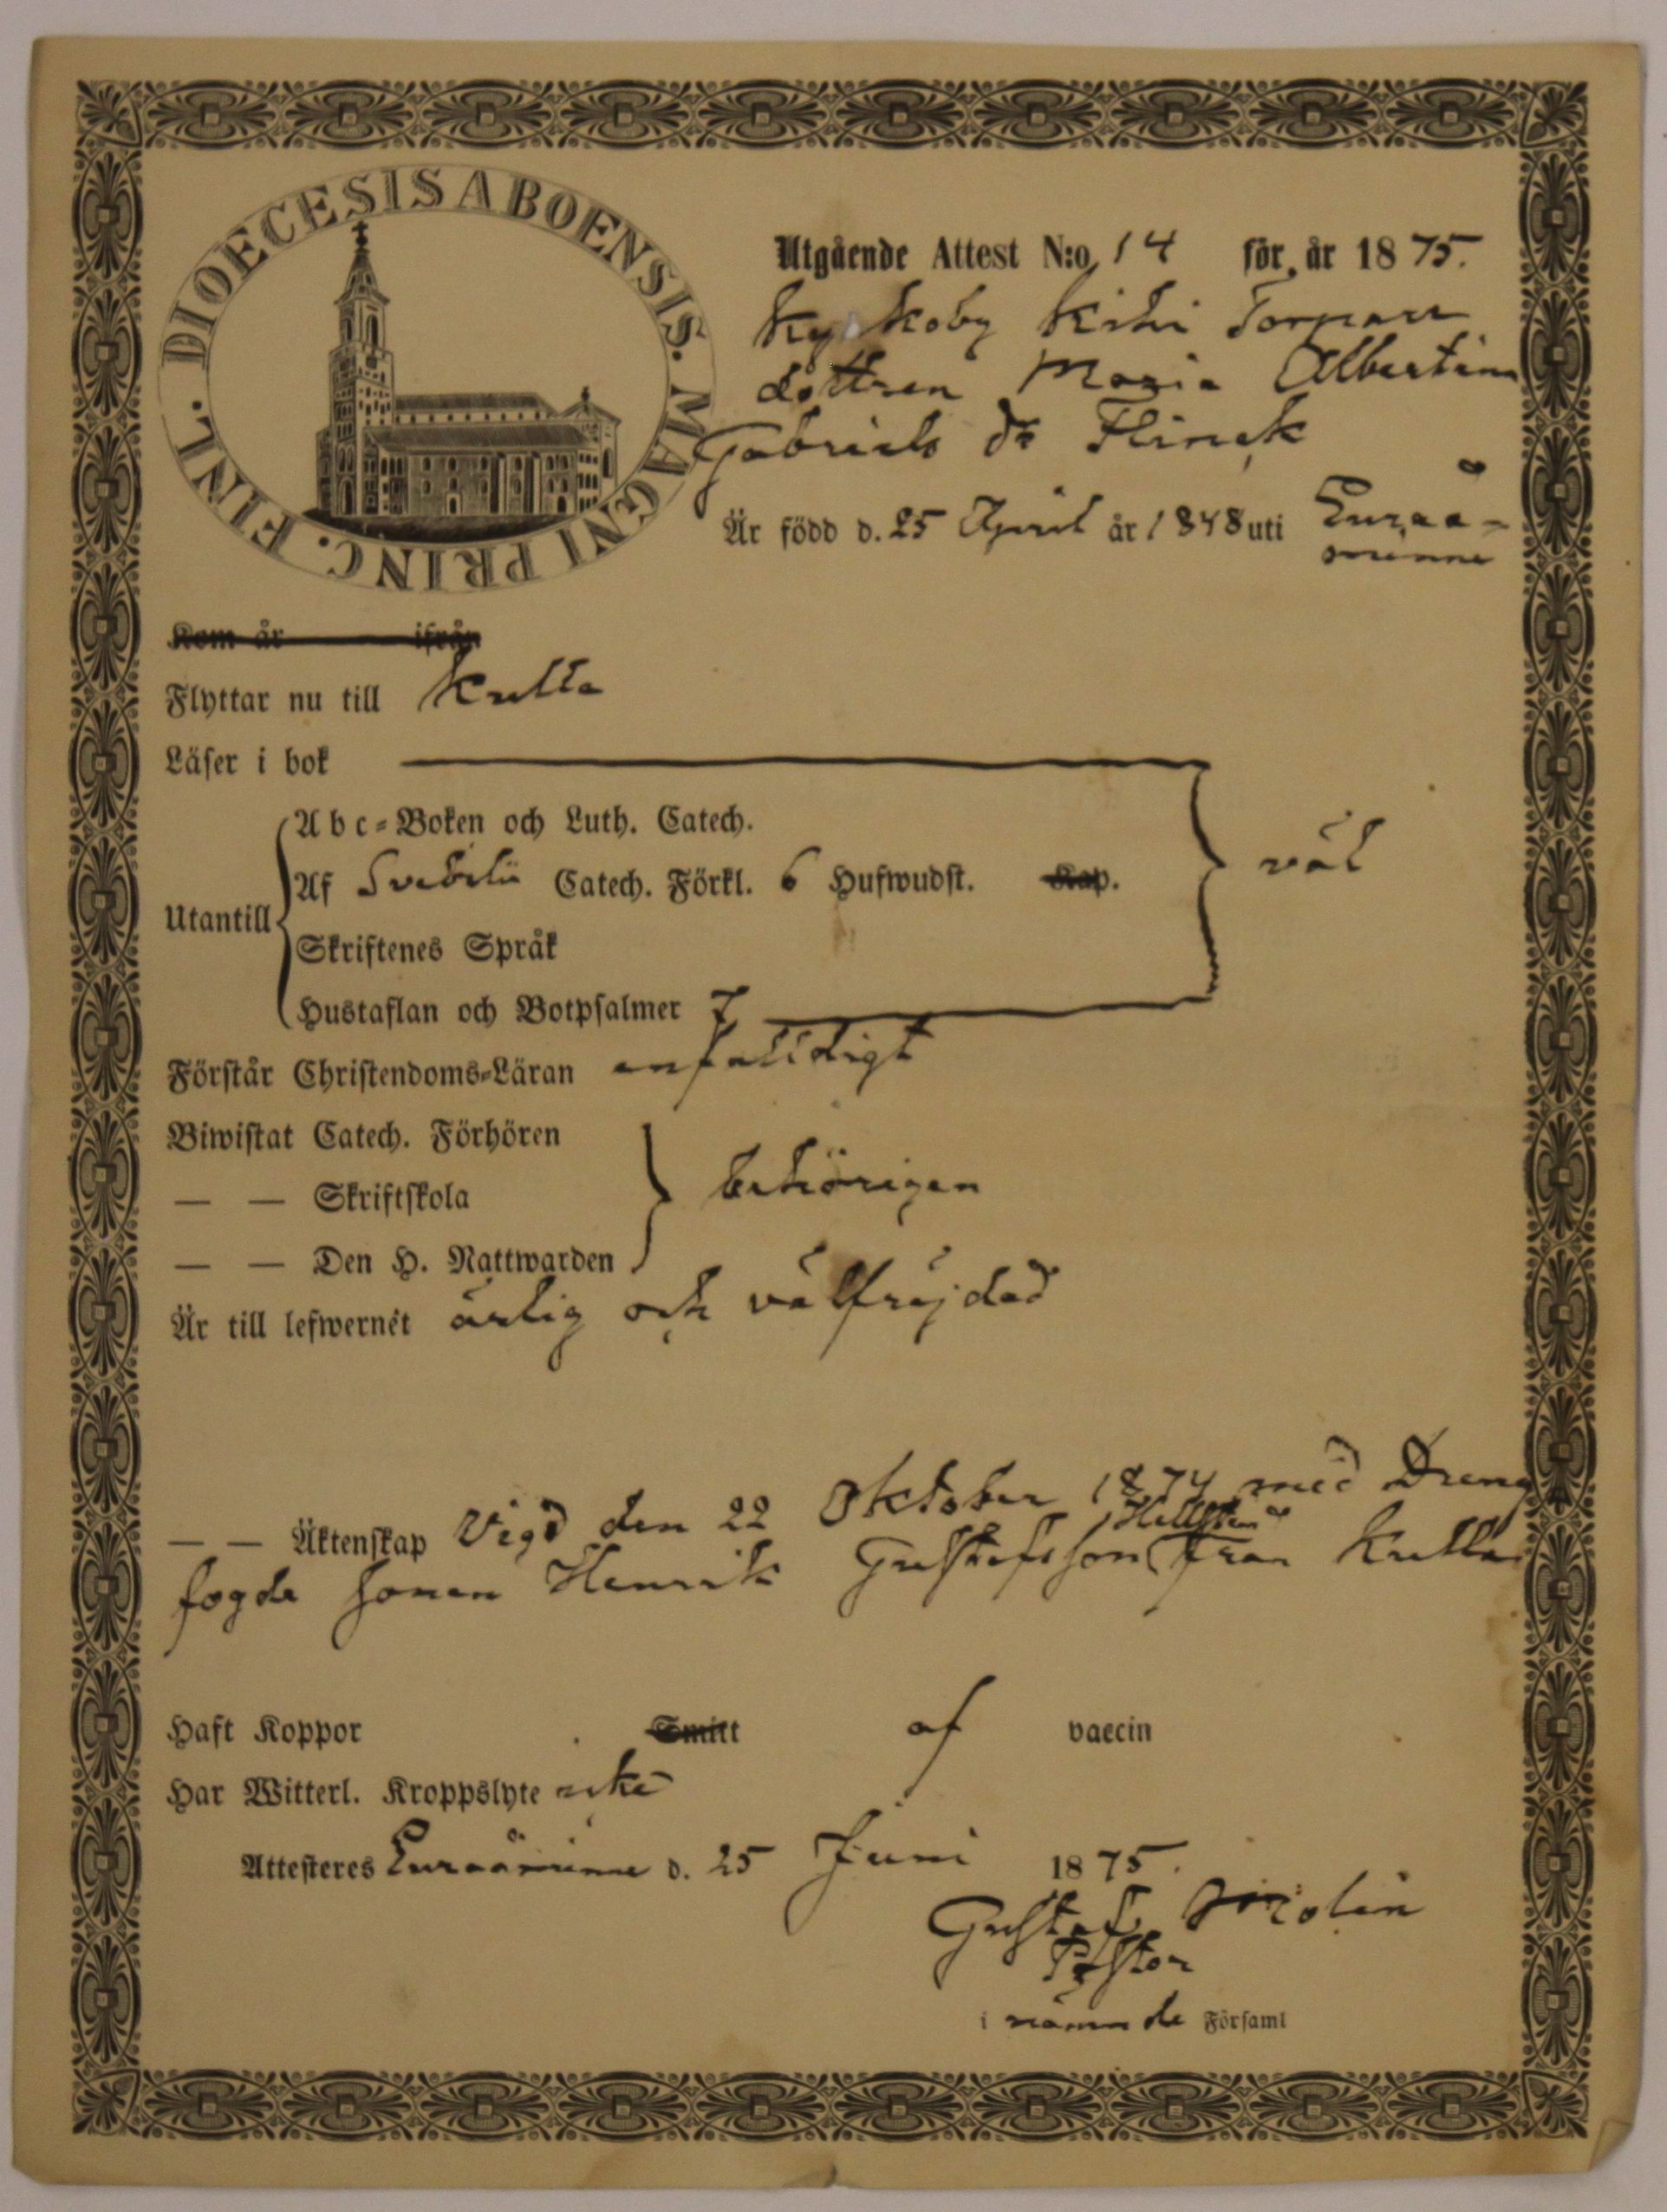 DIOECESIS ABOENSIS. MAGNI PRINC. FINL.
Utgående Attest N:o 14 för år 1875.
Kyrkoby Kihi Torpare
dottren Maria Albertina
Gabriels dr Flinck
Är född d. 25 April år 1848 uti Euraå-
minne
Kom år ifrån
Flyttar nu till Kulla
Läser i bok
Abc-Boken och Luth. Catech.
Af Svebelii Catech. Förkl. 6 Hufwudst. Kap.
väl
Utantill
Skriftenes Språk
Hustaflan och Botpsalmer 7
Förstår Christendoms-Läran enfalldigt
Biwistat Catech. Förhören
— — Skriftskola behörigen
— — Den H. Nattwarden
Är till lefwernet ärlig och välfräjdad
— — Äktenskap Vigd den 22 Oktober 1874 med Dreng
Hellsten
fogde Johan Henrik Gustafsson från Kulla
Haft Koppor Smitt af vaccin
Har Witterl. Kroppslyte icke
Attesteres Euraåminne d. 25 Juni 1875.
Gustaf Molin
Pastor
i nämnde Församl